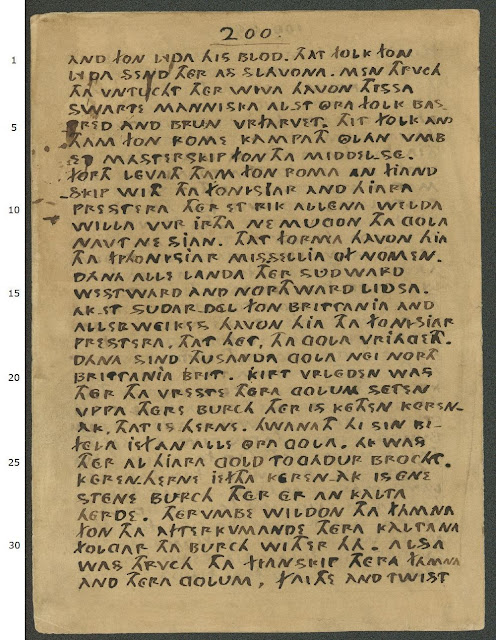 200.
1
AND FON LYDA HIS BLOD. THAT FOLK FON
LYDA SEND THER AS SLAVONA. MEN THRVCH
THA VNTUCHT THER WIVA HAVON THISSA
SWARTE MANNISKA ALST ORA FOLK BAS
5
TRED AND BRUN VRFARVET. THIT FOLK AND
THAM FON ROME KAMPATH OLAN VMB
ET MASTERSKIP FON THA MIDDELSE.
FORTH LEVATH THAM FON ROMA AN FIAND
SKIP WITH THA FONISIAR AND HIARA
10
PRESTERA THER ET RIK ALLENA WELDA
WILLA WR IRTHA NE MUGON THA GOLA
NAVT NE SIAN. THAT FORMA HAVON HIA
THA FPHONISIAR MISSELLIA OF NOMEN.
DANA ALLE LANDA THER SUDWARD
15
WESTWARD AND NORTHWARD LIDSA.
AK ET SUDAR DEL FON BRITTANIA AND
ALLERWEIKES HAVON HIA THA FONISIAR
PRESTERA, THAT HET, THA GOLA VRIAGETH.
DANA SIND THUSANDA GOLA NEI NORTH
20
BRITTANIA BRIT. KIRT VRLEDEN WAS
THER THA VRESTE THERA GOLUM SETEN
VPPA THERE BURCH THER IS KETHEN KEREN-
AK. THAT IS HERNE. HWANATH HI SIN BI-
FELA IEF AN ALLE ORA GOLA. AK WAS
25
THER AL HIARA GOLD TOGADUR BROCHT.
KEREN.HERNE IEFTHA KEREN-AK IS ENE
STENE BURCH THER ER AN KALTA
HERDE. THERVMBE WILDON THA FAMNA
FON THA AFTERKUMANDE THERA KALTANA
30
FOLGAR THA BURCH WITHER HA. ALSA
WAS THRVCH THA FIANSKIP THERA FAMNA
AND THERA GOLUM, FAITHE AND TWIST